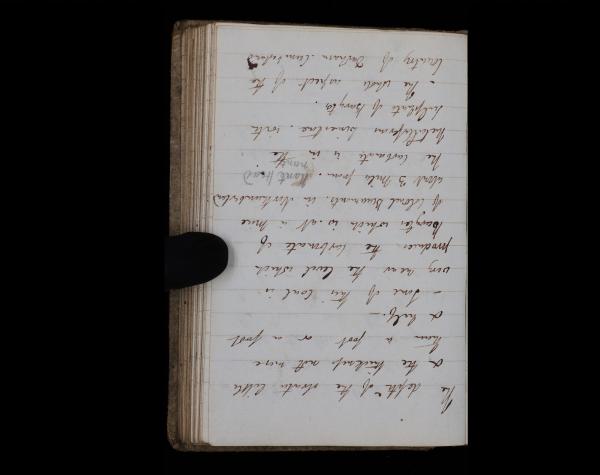 The depth of the strata little
& the thickness not more
than a foot or a foot
& half. —
- Some of this Coal is
very near the level which
produces the Carbonate of
barytes which is at a mine
of Colonel Beaumonts in Northumberland
about 3 miles from Nant Head
The Carbonate is in the
metalliferous limestone with
Sulphate of barytes.
- The whole aspect of the
Country of Durham Cumberland